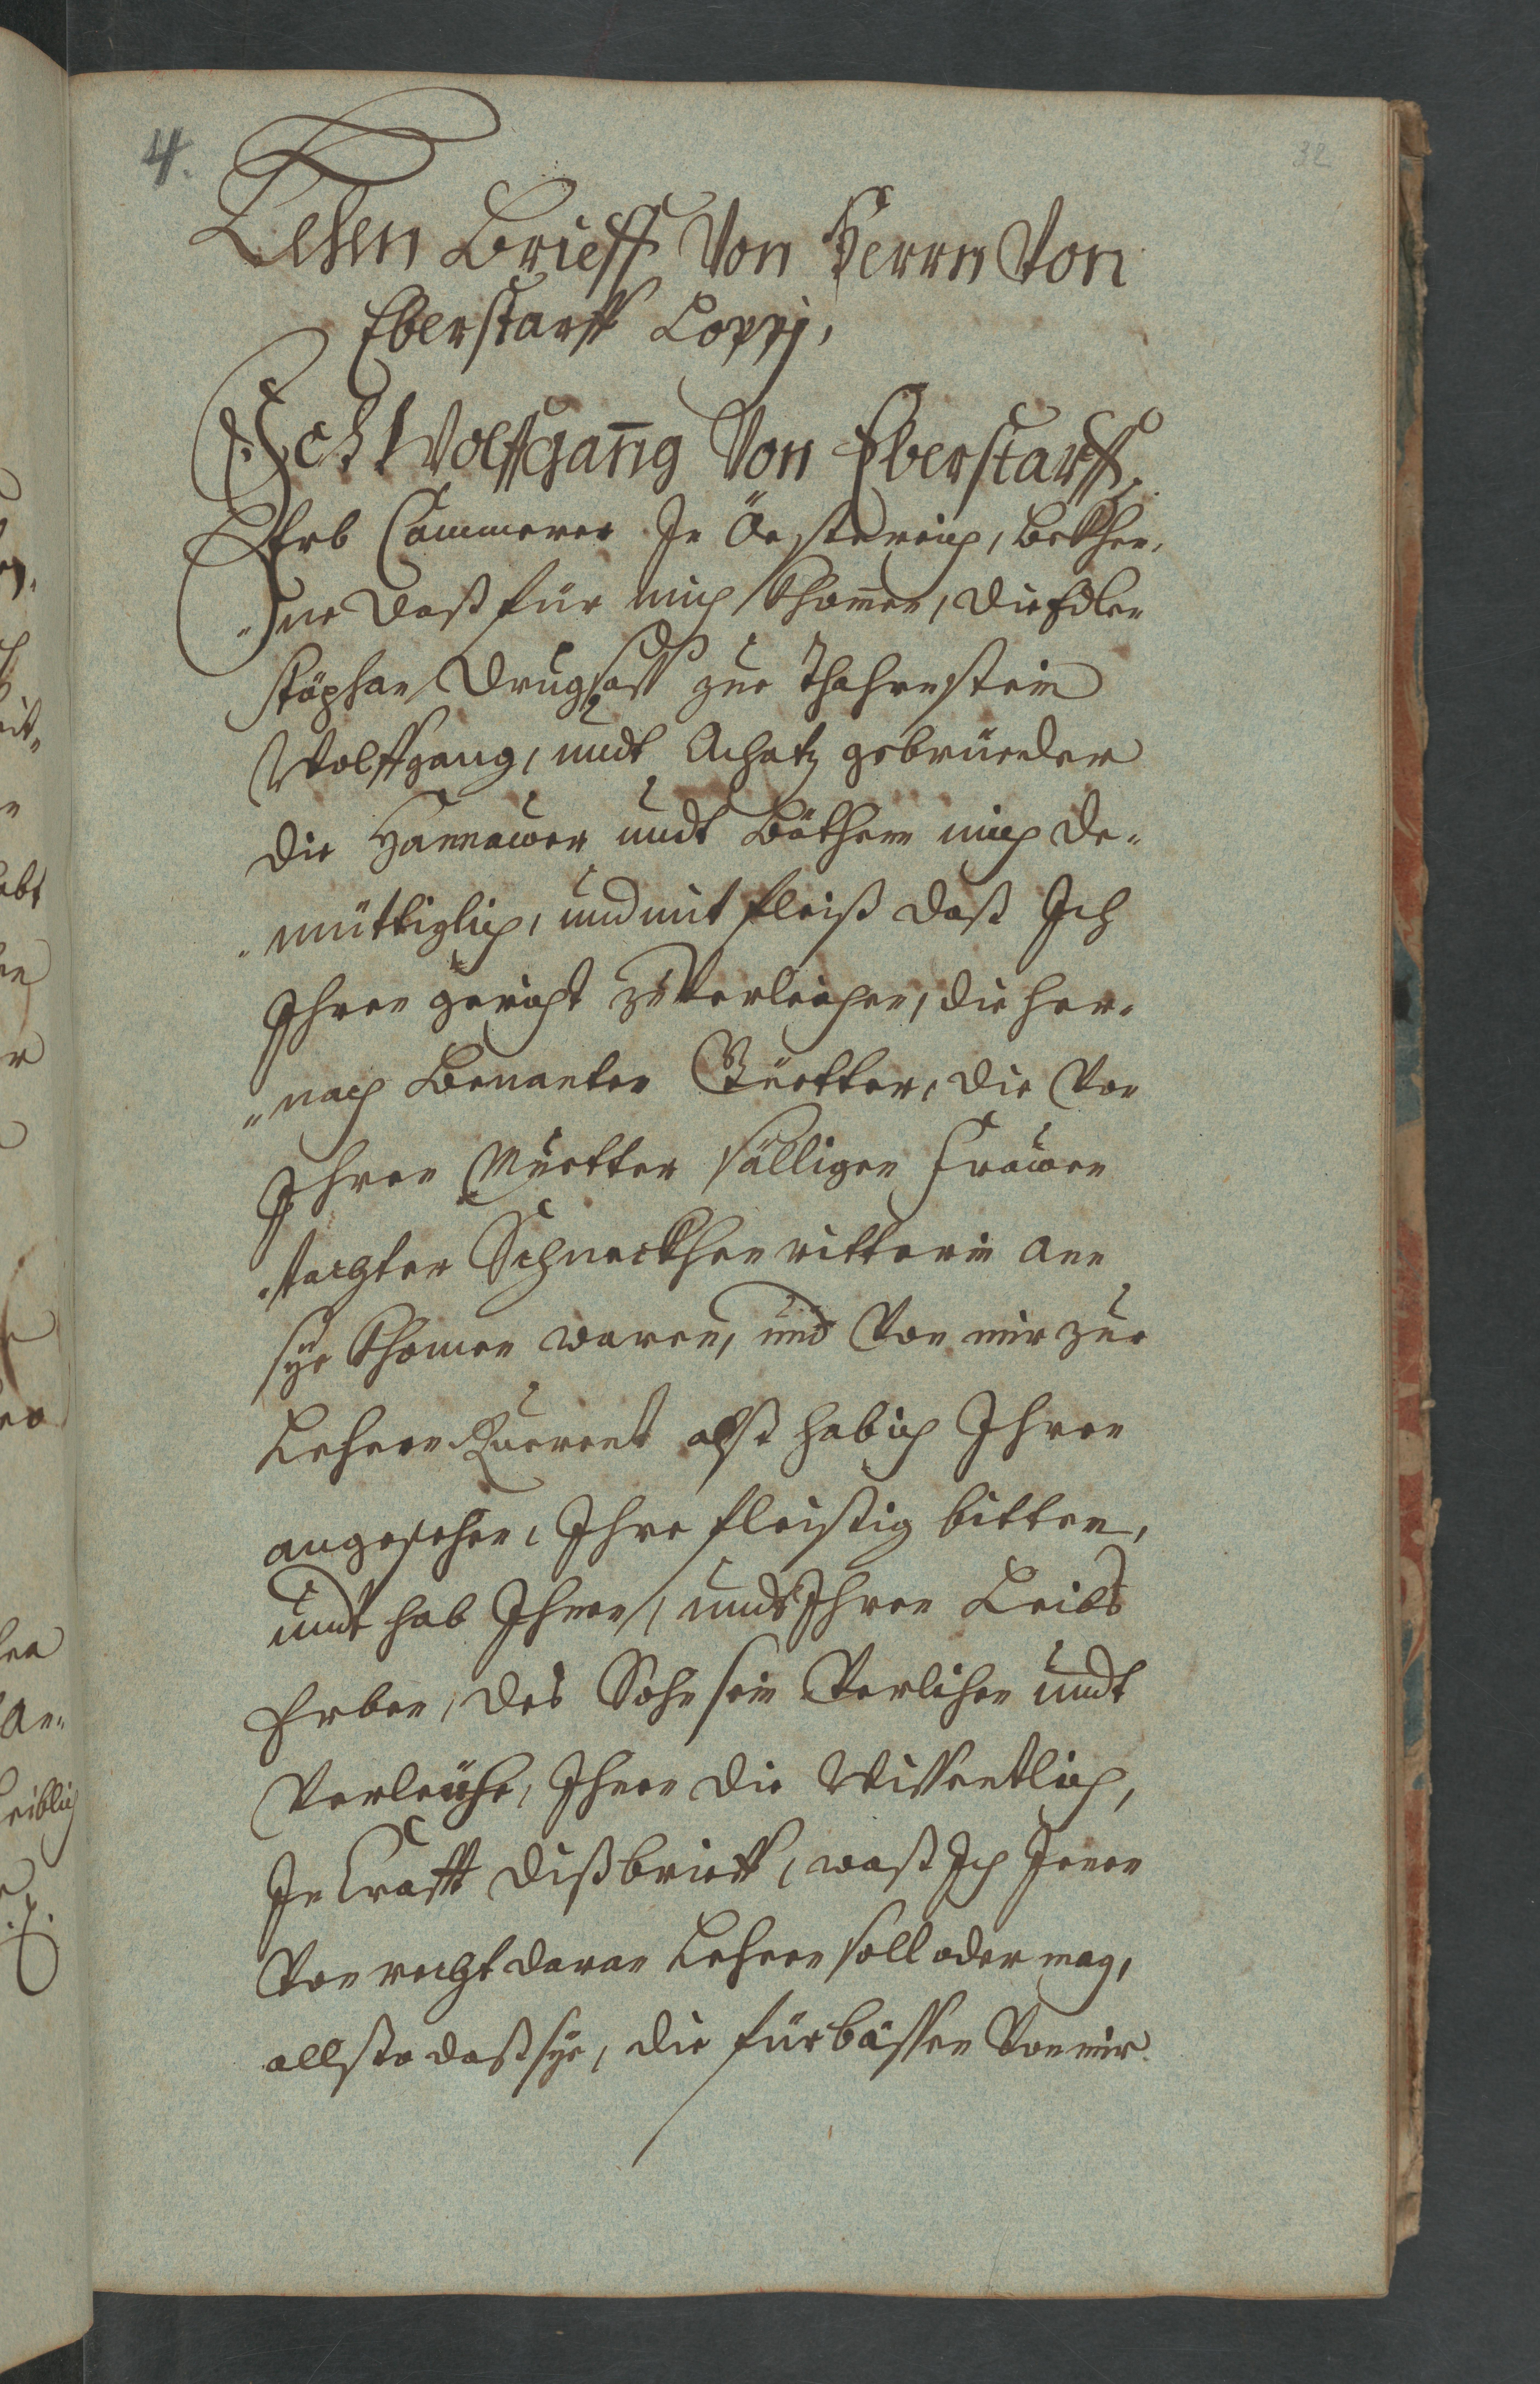 4.
32
Lehen Brieff Von Herrn Von
Eberstarff Coppj,
Ich Wolffgang Von Eberstarff,
Erb Cammerer In Öesterreich, bekhen,
„ne daß für mich khomen, die Edlen
Stöphan Drugsass zue Thahenstein
Wolffgang, undt Achatz gebrüeder
die Hannawer undt Bäthenn mich de„
„müttiglich, und mit fleiß daß Ich
Ihnen gericht zu Verleichen, die her„
„nach benanten Güetter, die Von
Ihren Muetter sälligen Frawen
„tochter Schneckhenritterin ann
sye khomen waren, und Von mir zue
Lehenn Ruerent alß hab ich Ihnen
angesehen, Ihre fleissig bitten,
undt hab Ihnen, undt Ihren Leibs
Erben, des Sohn sein Verlihen undt
Verleuhe, Ihnen die Wissentlich,
In Krafft diß brieff, waß Ich Inen
Von recht daran Lehenn soll oder mag,
allso daß sye, die fürbassen Von mir